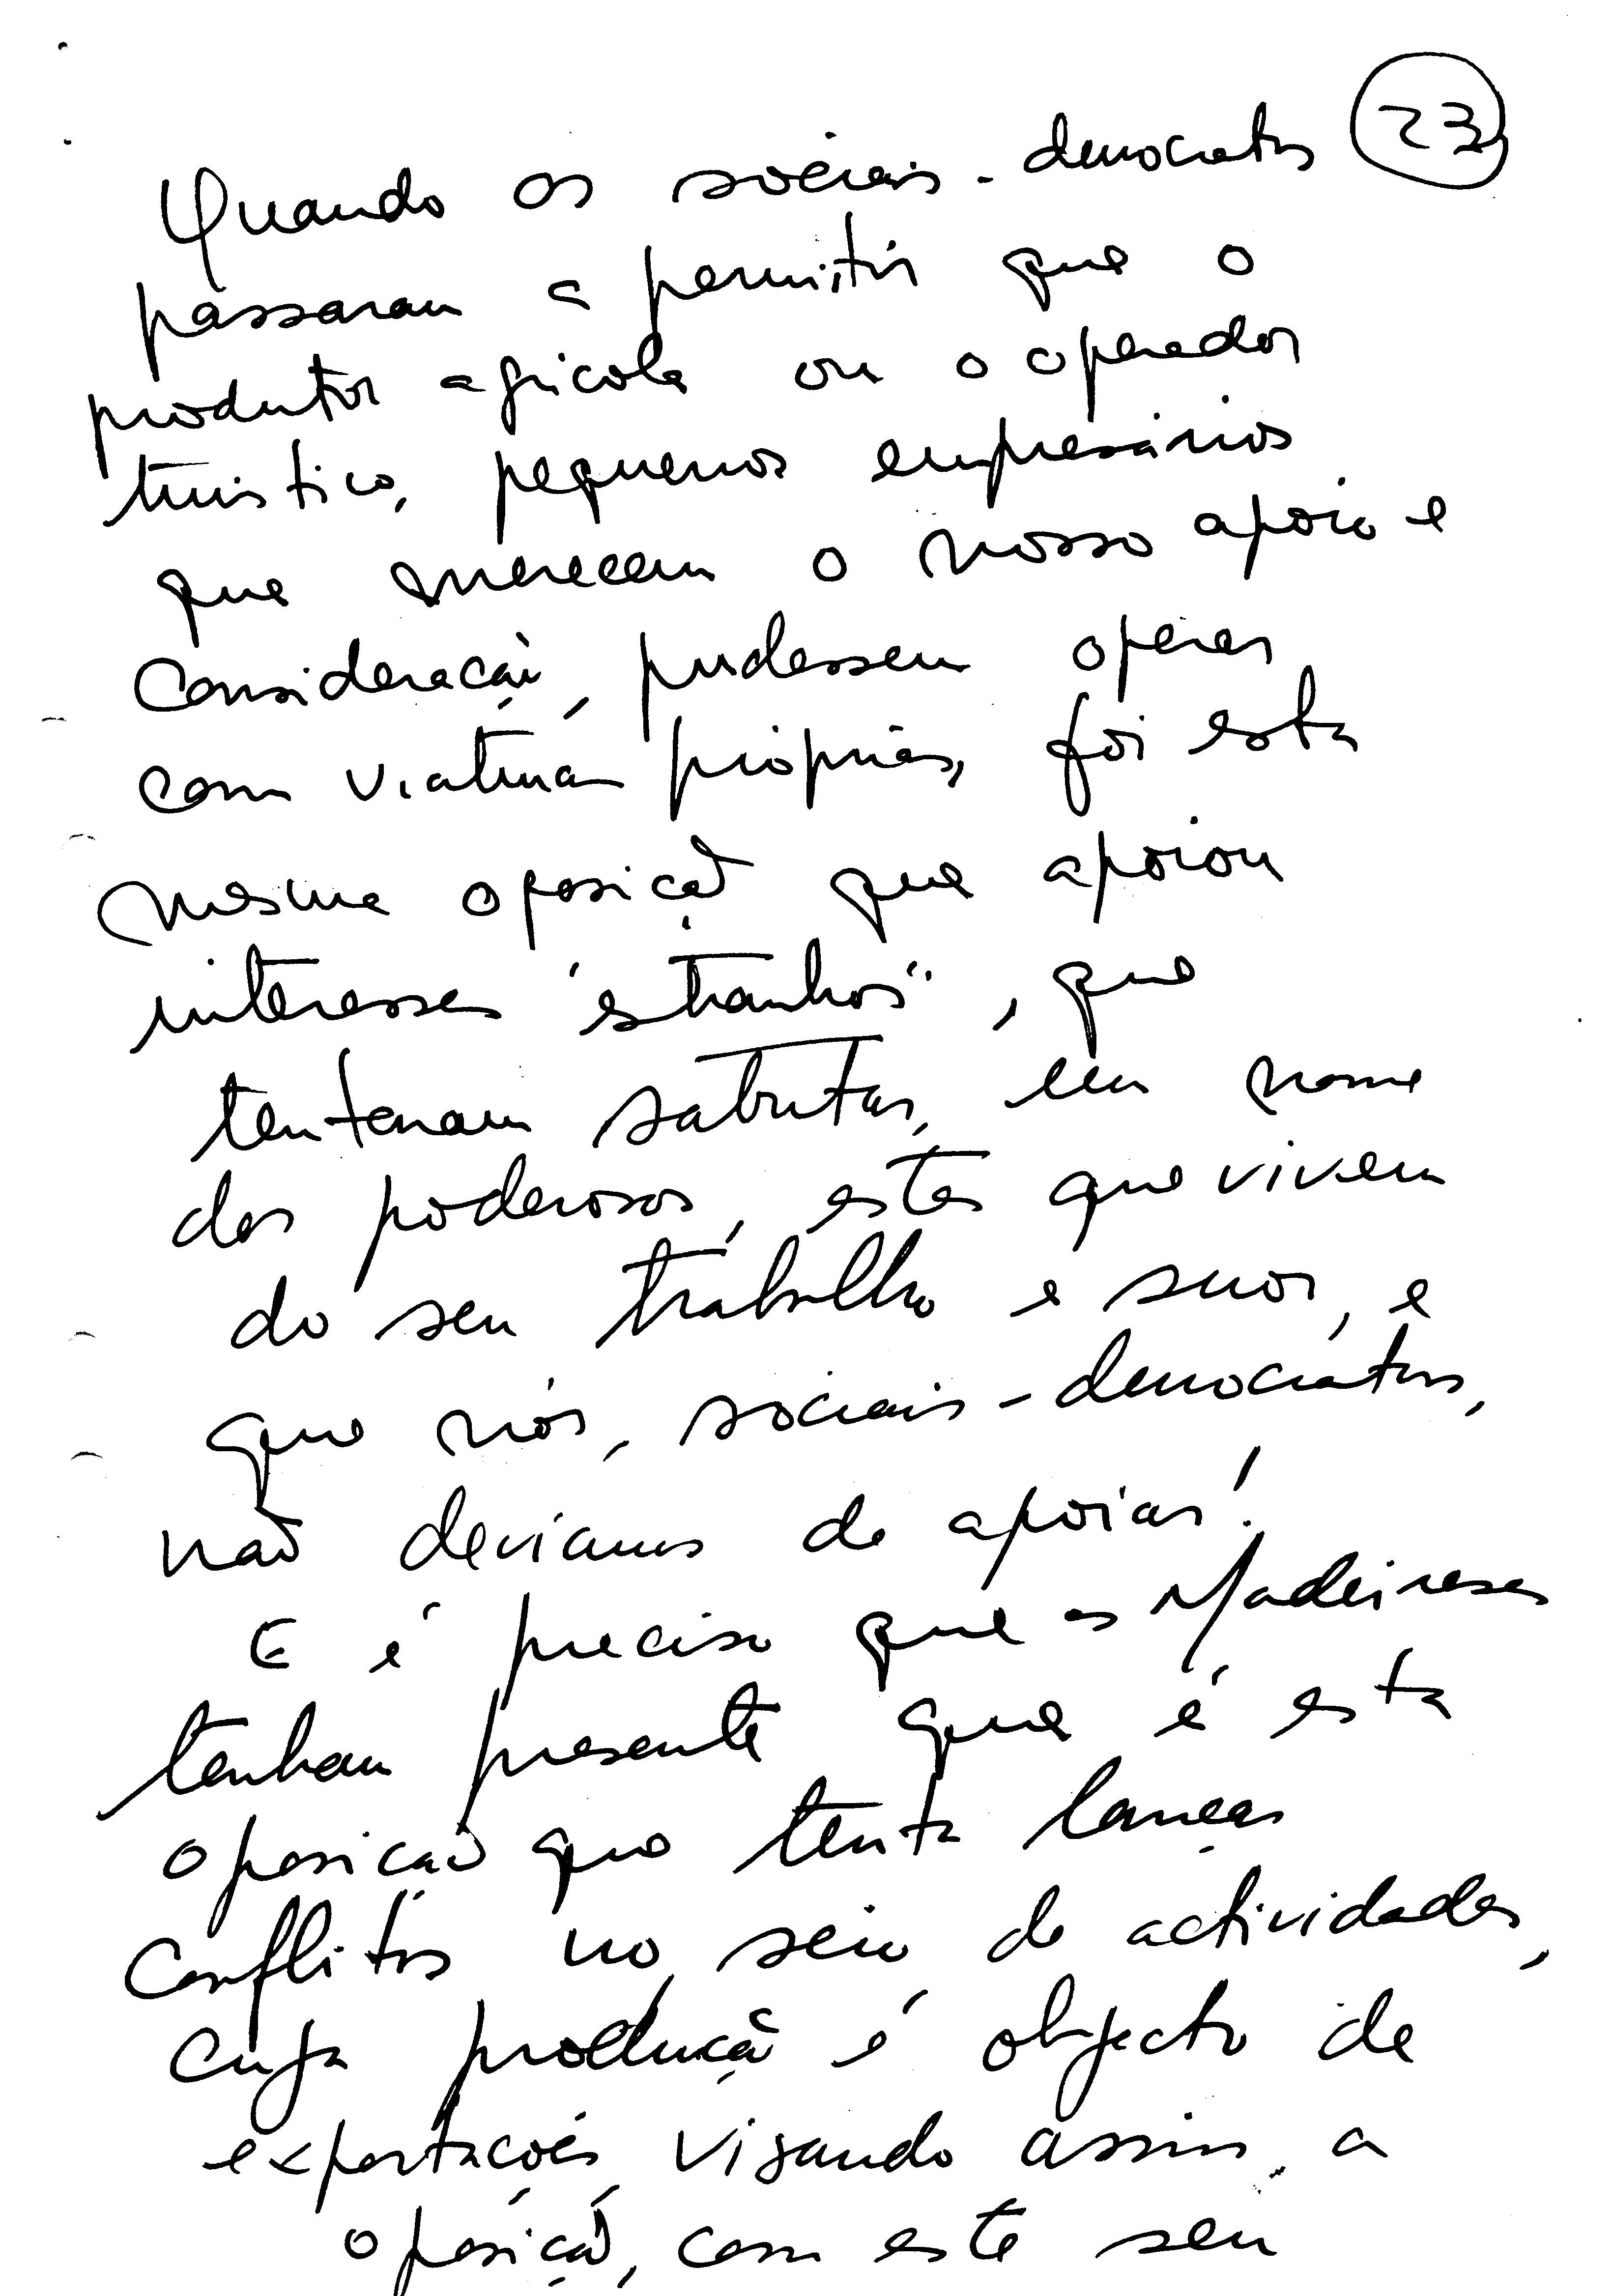 23
Quando os sociais-democratas
passaram a permitir que o
produtor agricola ou o operador
turistico, pequenos empresários
que merecem o nosso apoio e
consideração, pudessem operar
com viaturas próprias, foi esta
mesma oposição que apoiou
interesses "estranhos", que
tentaram sabotar, em nome
dos poderosos, estes que vivem
do seu trabalho e suor, e
que nós, sociais-democratas,
não deviamos de apoiar!
E é preciso que os Madeirenses
tenham presente que é esta
oposição que tenta lançar
conflitos no seio de actividades,
cuja produção é objecto de
exportações, visando assim, a
oposição, com este seu